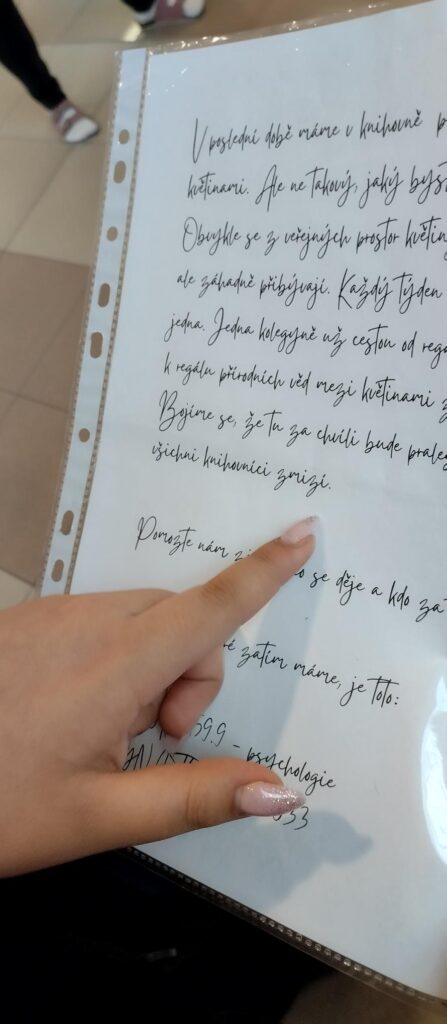 V poslední době máme v knihovně
květinami. Ale ne takový, jaký
Obvykle se z veřejných prostor
ale záhadně přibývají. Každý týden
jedna. Jedna kolegyně už cestou od
k regálu přírodních věd mezi květinami
Bojíme se, že tu za chvíli bude
všichni knihovníci zmizí.
Pomozte nám se děje a kdo
zatím máme, je toto:
59.9 – psychologie